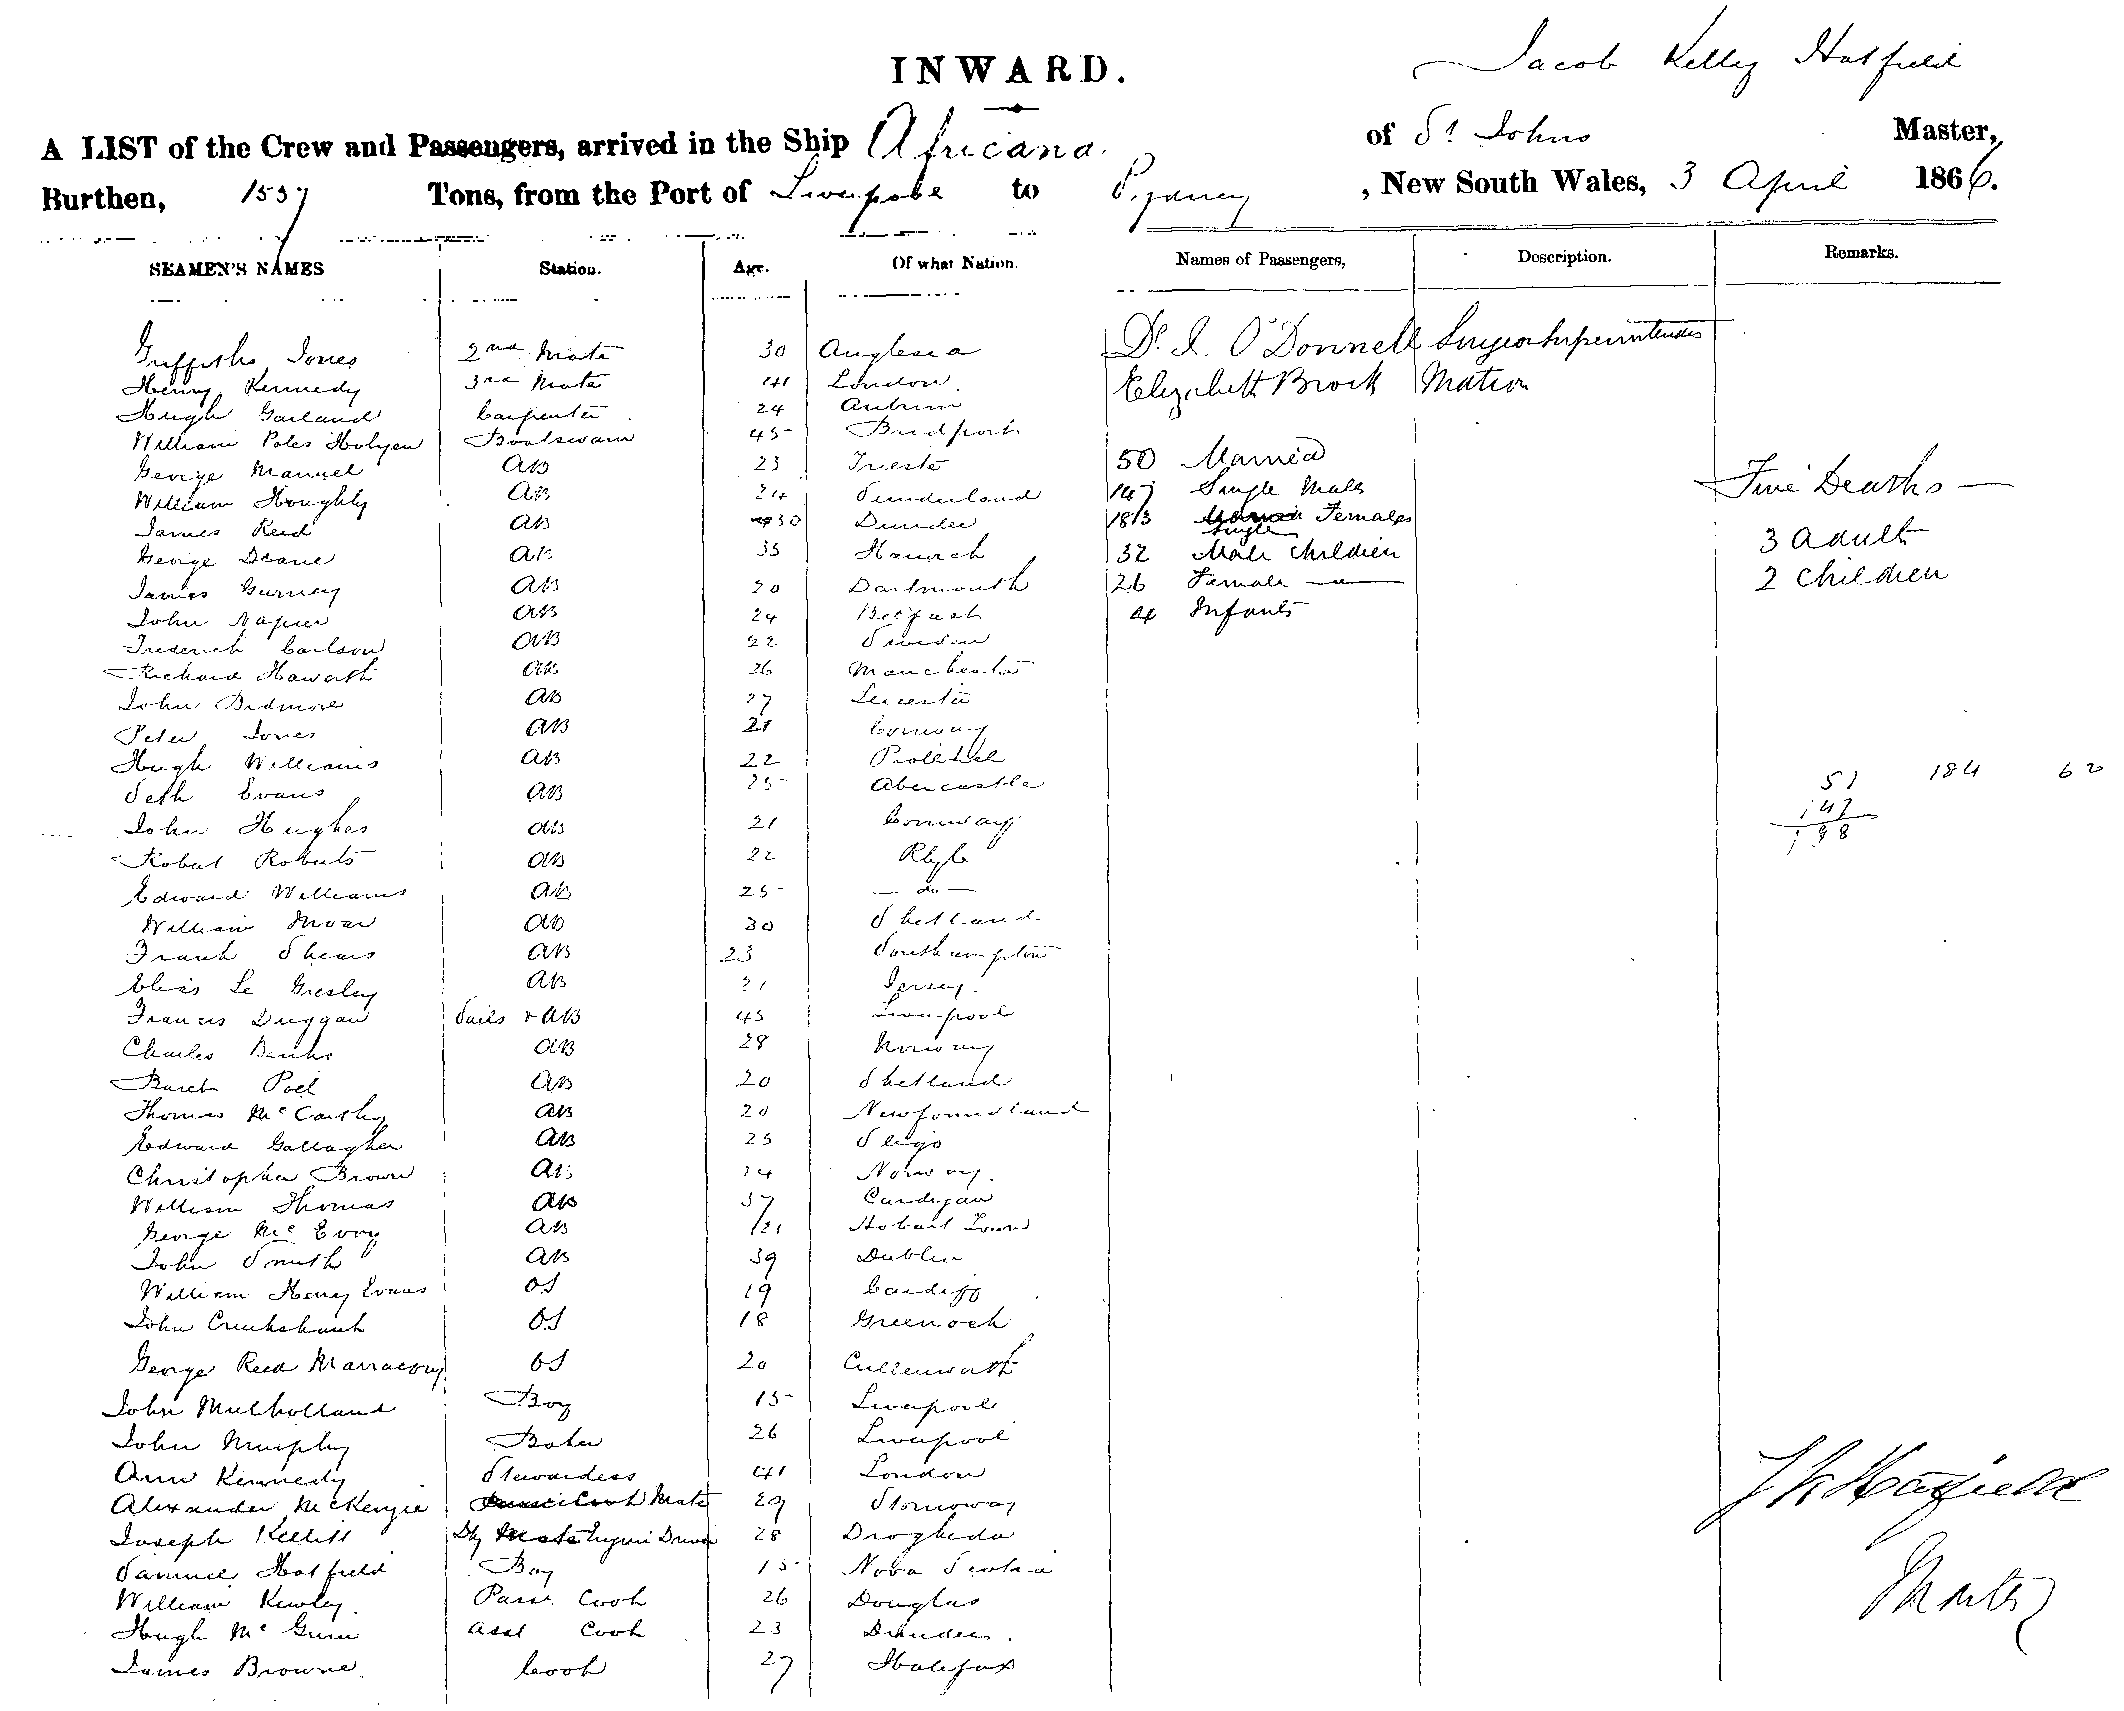 INWARD.
Jacob Kelley Hatfield
A LIST of the Crew and Passengers, arrived in the Ship Africana. of St Johns Master,
Burthen, 1537 Tons, from the Port of Liverpool to Sydney, New South Wales, 3 April 1866.
SEAMEN'S NAMES Station. Age. Of what Nation. Names of Passengers, Description. Remarks.
Griffiths Jones 2nd Mate 30 Anglesea Dr. O'Donnell Surgeon Superintendent
Henry Kennedy 3rd Mate 41 London. Elizabeth Brock Matron
Hugh Garland Carpenter 24 Antrim
William Poles Holyen Boatswain 45 Bridport
George Manuel AB 23 Trieste 50 Married
William Houghly AB 24 Sunderland 147 Single Males Five Deaths
James Reid AB 30 Dundee 183 Single Females
George Deane AB 35 3 Adult
32 Male Children
James Gurney AB 20 Dartmouth 26 Female 2 Children
John Napier AB 24 Belfast 4 Infants
Frederick Carlson AB 22 Sweden
Richard Haworth AB 26 Manchester
John Bidmore AB 27 Leicester
Peter Jones AB 21 Conway
Hugh Williams AB 22
51 184 62
Seth Evans AB 25 Abercastle
147
John Hughes AB 21 Conway
198
Robert Roberts AB 22 Rhyl
Edward Williams AB 25 — do —
William Moar AB 30 Shetland
Frank Shears AB 23 Southampton
Elias Le Gresley AB 21 Jersey.
Francis Duggan Sails & AB 45 Liverpool
Charles Banks AB 28 Norway
Poel AB 20 Shetland
Thomas McCarthy AB 20 Newfoundland
Edward Gallagher AB 25 Sligo
Christopher Brown AB 24 Norway.
William Thomas AB 37 Cardigan
George McEvoy AB 21 Hobart Town
John Smith AB 39 Dublin
William Henry Evans OS 19 Cardiff
John Cruikshank OS 18 Greenock
George Reed OS 20
John Mulholland Boy 15 Liverpool
John Murphy Baker 26 Liverpool
Ann Kennedy Stewardess 41 London
Alexander McKenzie Mate 29 Stornoway
J K Hatfield
Joseph Kellitt Engine Driver 28 Drogheda
Samuel Hatfield Boy 15 Nova Scotia
William Kewley. Pass. Cook 26 Douglas
Master
Hugh Mc Asst Cook 23 Dundee.
James Browne. Cook 27 Halifax